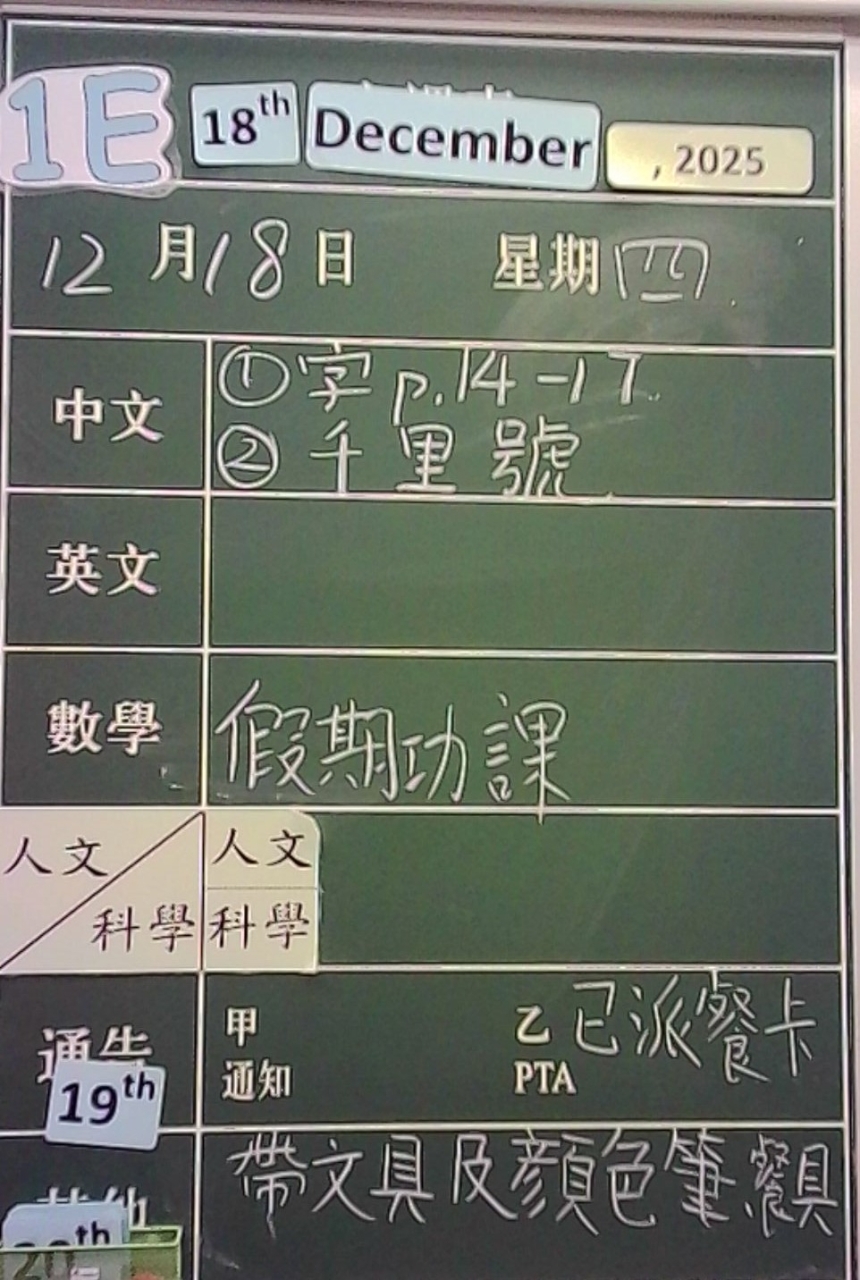 1E 18th December , 2025
12月18日 星期四
中文 ①字 p.14-17
②千里號
英文
數學 假期功課
人文 科學 人文
科學
通告 甲 乙 已派餐卡
通知 PTA
19th
其他 帶文具及顏色筆 餐具
20